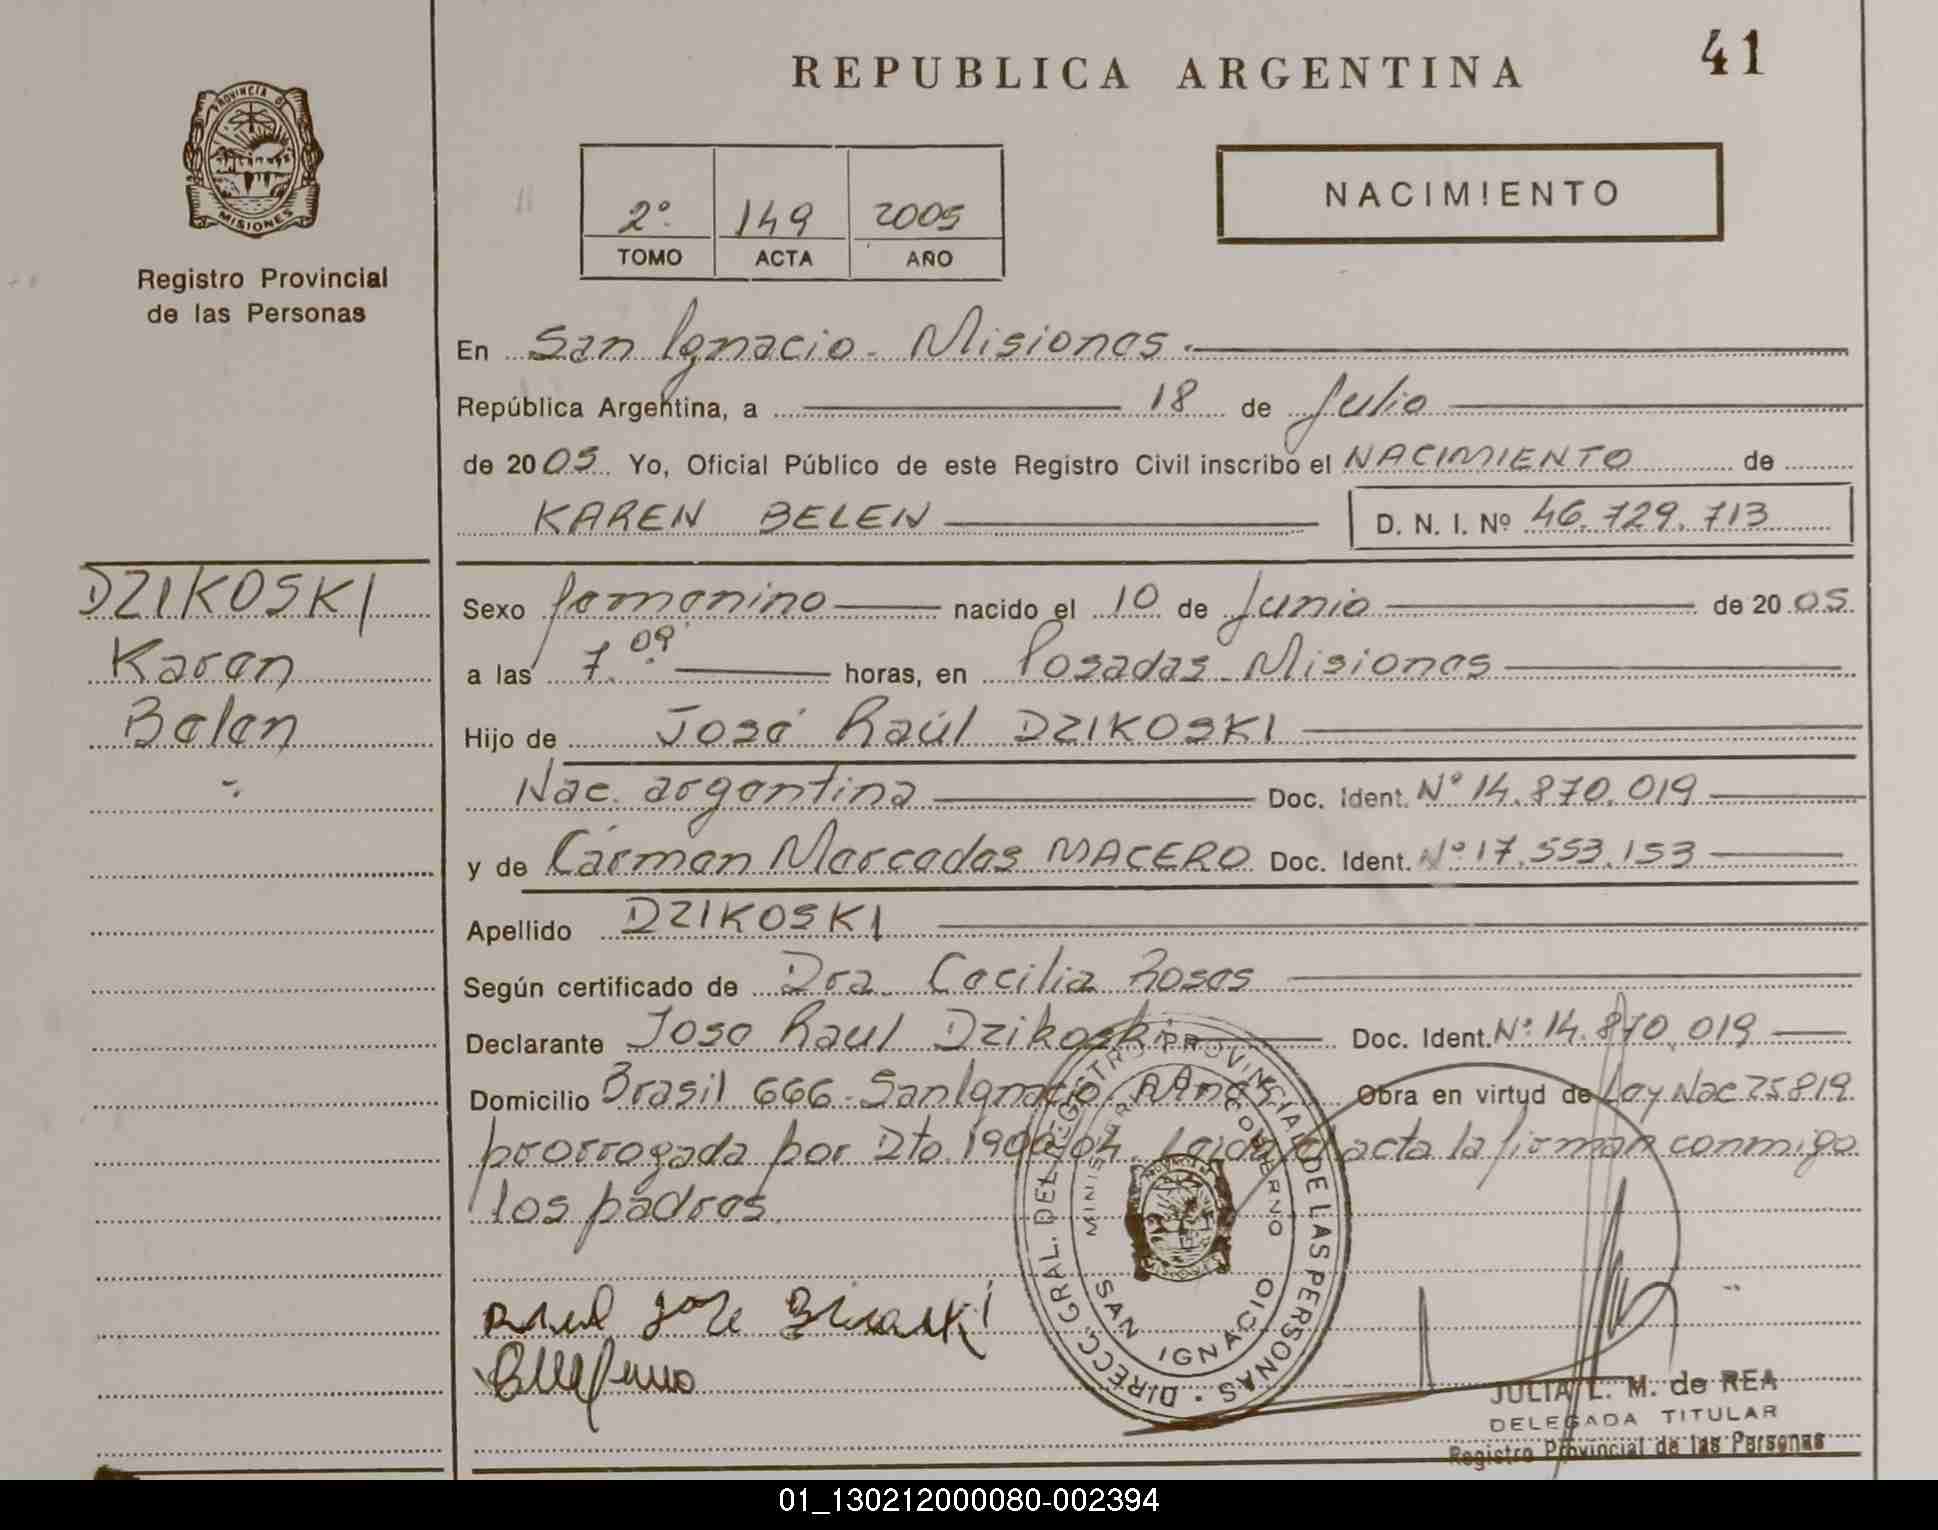 REPUBLICA ARGENTINA
41
PROVINCIA DE
MISIONES
Registro Provincial
de las Personas
2º 149 2005
TOMO ACTA AÑO
NACIMIENTO
En San Ignacio - Misiones.
República Argentina, a 18 de Julio
de 2005 Yo, Oficial Público de este Registro Civil inscribo el NACIMIENTO de
KAREN BELEN D. N. I. Nº 46.729.713
DZIKOSKI
Karen
Belen
Sexo femenino nacido el 10 de Junio de 2005
a las 7.09 horas, en Posadas - Misiones
Hijo de José Raúl DZIKOSKI
Nac. argentina Doc. Ident. Nº 14.870.019
y de Cármen Mercedes MACERO Doc. Ident. Nº 17.553.153
Apellido DZIKOSKI
Según certificado de Dra. Cecilia Rosas
Declarante Jose Raul Dzikoski Doc. Ident. Nº 14.870.019
Domicilio Brasil 666 - San Ignacio Mnes. Obra en virtud de Ley Nac 25819
prorrogada por Dto. 1900/04. Leida el acta la firman conmigo
los padres.
DIRECC. GRAL. DEL REGISTRO PROVINCIAL DE LAS PERSONAS
MINISTERIO DE GOBIERNO
SAN IGNACIO
JULIA L. M. de REA
DELEGADA TITULAR
Registro Provincial de las Personas
01_130212000080-002394